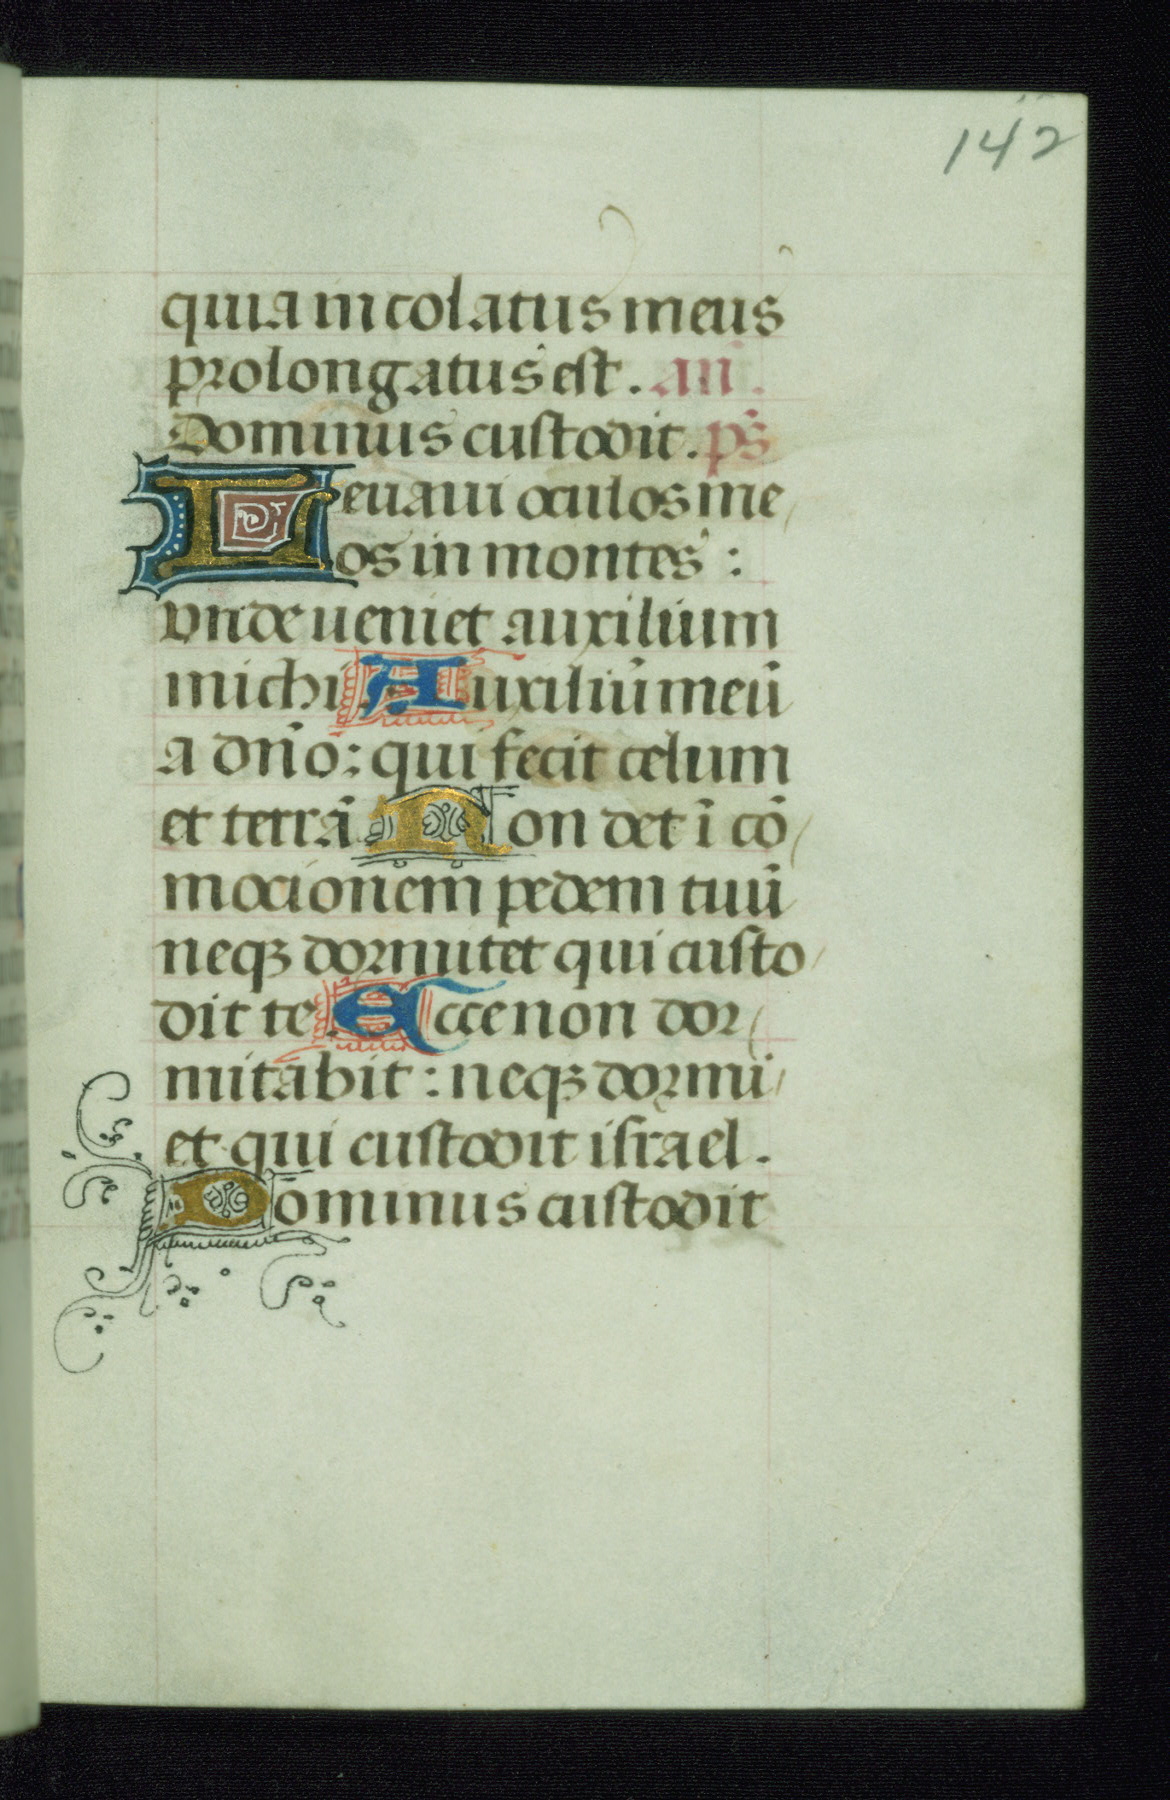 142
quia incolatus meus
prolongatus est. an̄.
Dominus custodit. ps̄
Leuaui oculos me
os in montes :
vnde ueniet auxilium
michi Auxiliū meū
a dn̄o: qui fecit celum
et terrā Non det ī cō
mocionem pedem tuū
neqꝫ dormitet qui custo
dit te Ecce non dor
mitabit : neqꝫ dormi
et qui custodit israel.
Dominus custodit